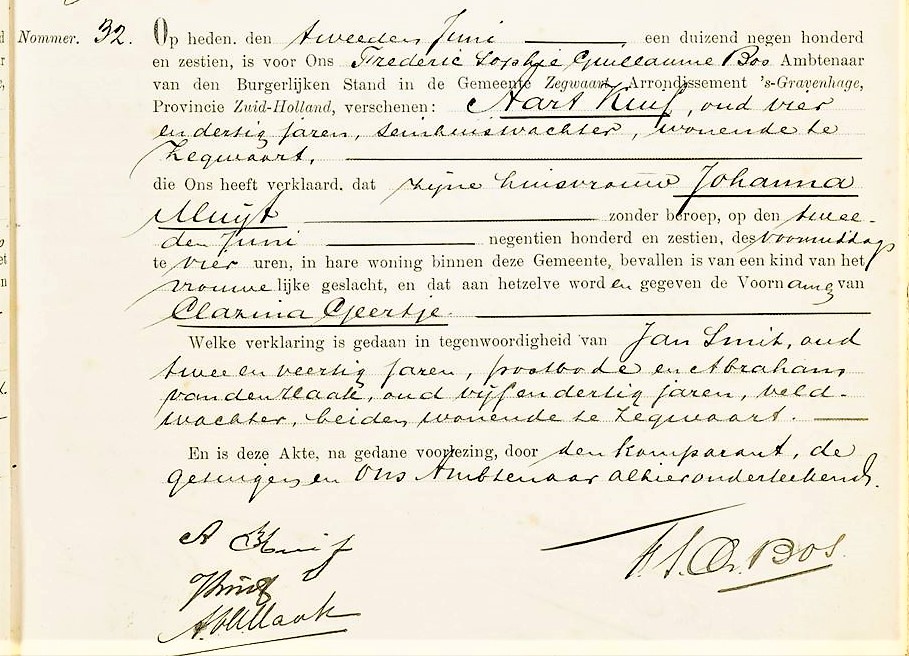 Nommer. 32. Op heden, den tweeden Juni een duizend negen honderd
en zestien, is voor Ons Frederic Sophie Guillaume Bos Ambtenaar
van den Burgerlijken Stand in de Gemeente Zegwaart, Arrondissement 's-Gravenhage,
Provincie Zuid-Holland, verschenen: Aart Kuif, oud vier
en dertig jaren, seinhuiswachter, wonende te
Zegwaart,
die Ons heeft verklaard, dat zijne huisvrouw Johanna
Muijt zonder beroep, op den twee-
den Juni negentien honderd en zestien, des voormiddags
te vier uren, in hare woning binnen deze Gemeente, bevallen is van een kind van het
vrouwelijke geslacht, en dat aan hetzelve worden gegeven de Voornamen van
Clazina Geertje.
Welke verklaring is gedaan in tegenwoordigheid van Jan Smit, oud
twee en veertig jaren, postbode en Abraham
van den Haak, oud vijf en dertig jaren, veld-
wachter, beiden wonende te Zegwaart.
En is deze Akte, na gedane voorlezing, door den komparant, de
getuigen en Ons Ambtenaar alhier onderteekend.
A Kuif
F. S. G. Bos.
JSmit
A.v.d.Haak